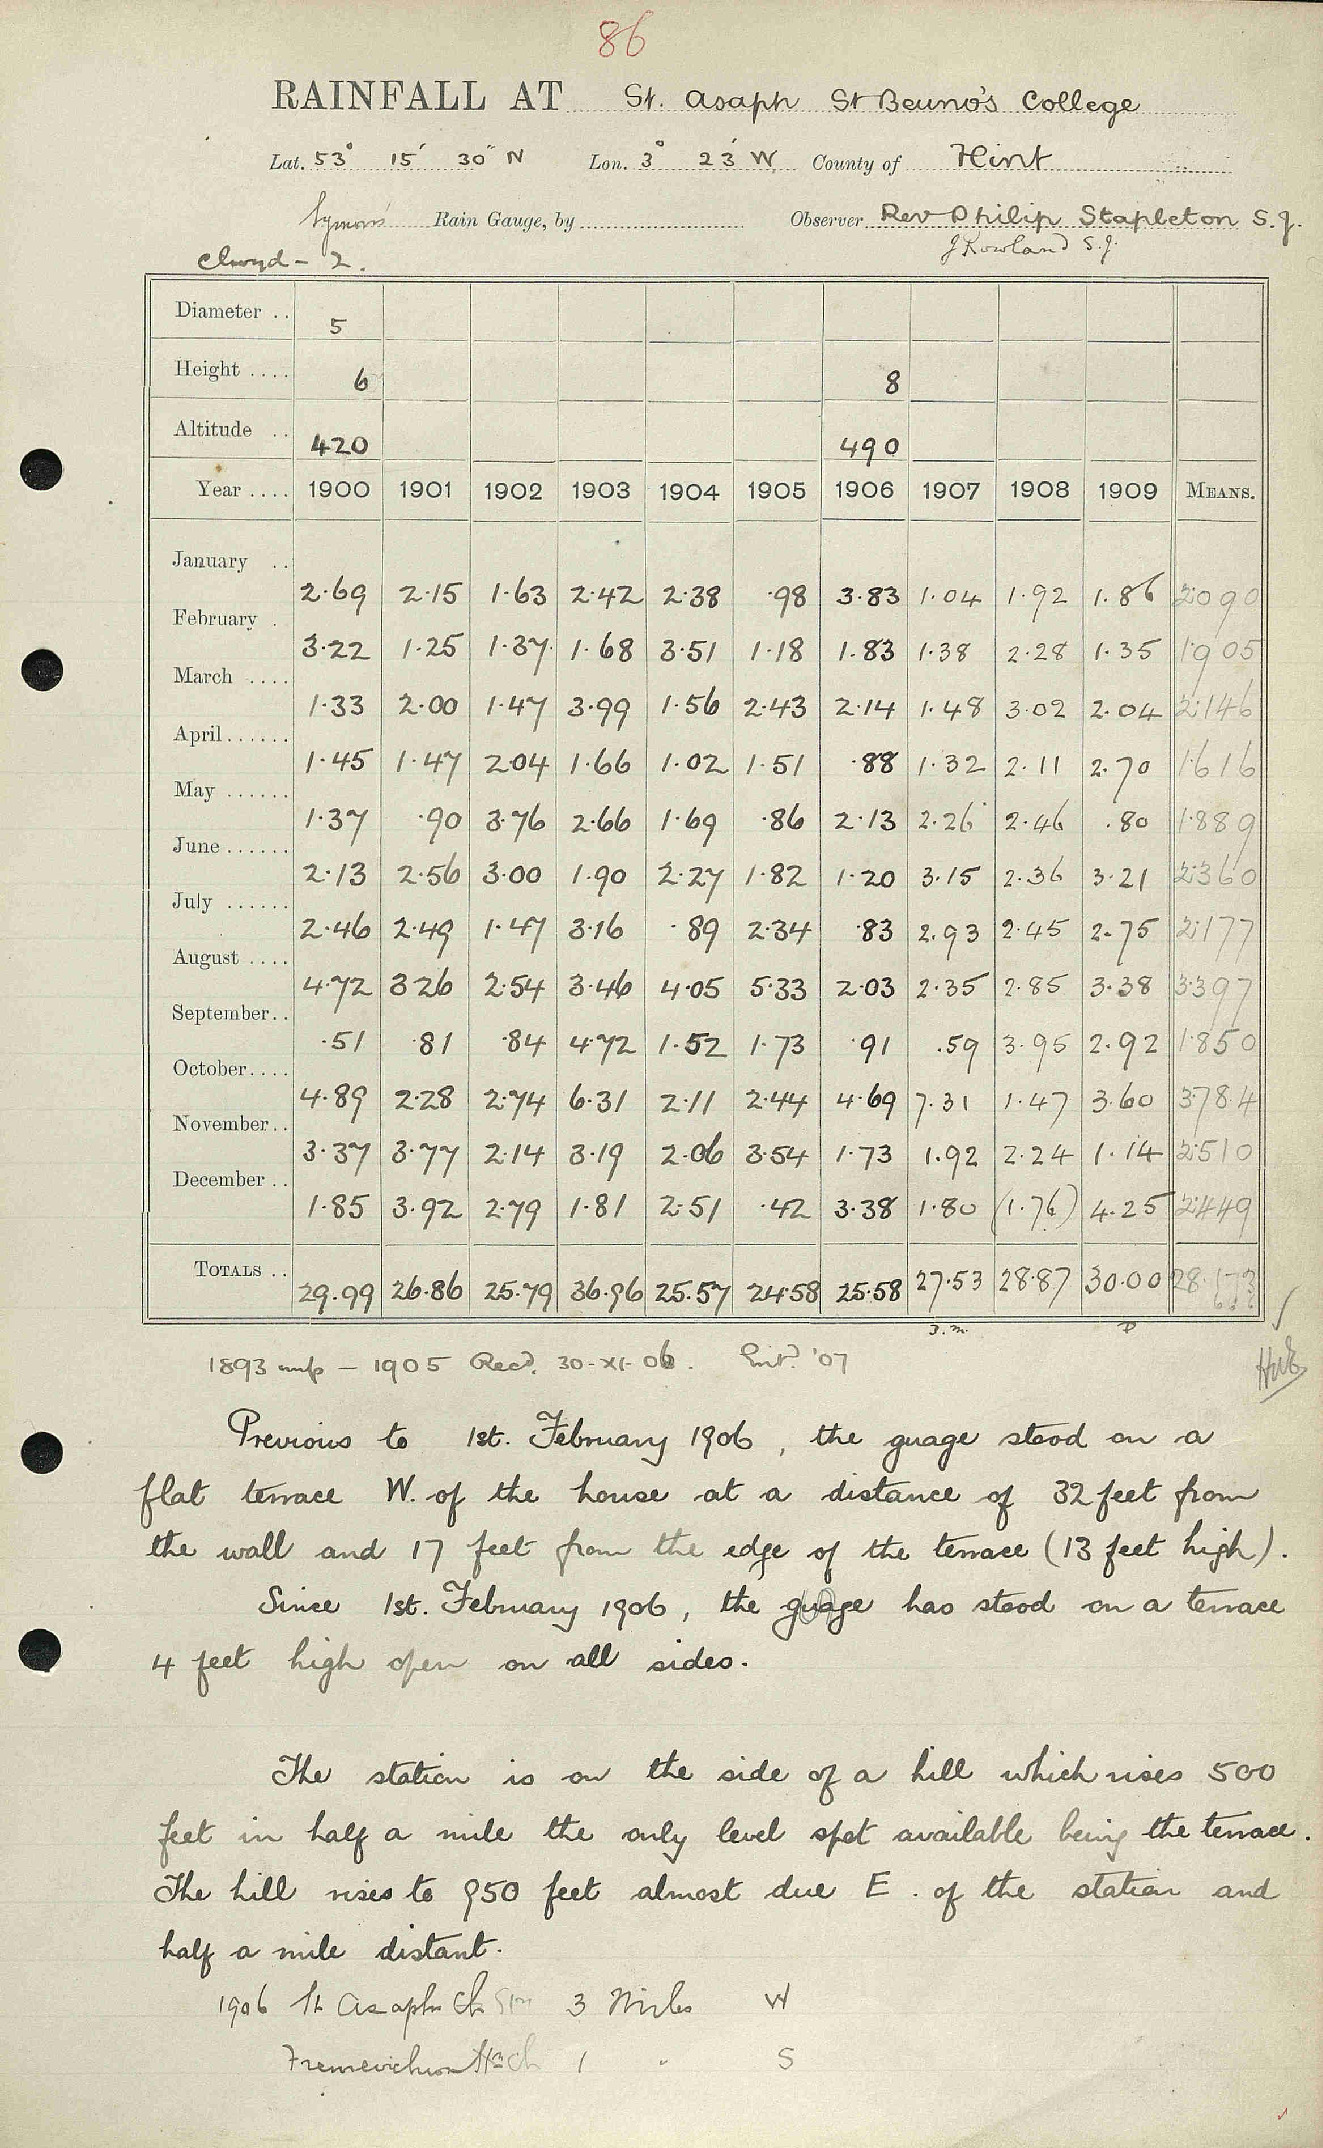 86
RAINFALL AT St. Asaph St Beuno's College
Lat. 53° 15' 30" N Lon. 3° 23' W County of Flint
Symons Rain Gauge, by Observer Rev Philip Stapleton S.J.
J Rowland S.J.
Clwyd - 2.
Diameter .. 5
Height .... 6 8
Altitude .. 420 490
Year .... 1900 1901 1902 1903 1904 1905 1906 1907 1908 1909 MEANS.
January .. 2.69 2.15 1.63 2.42 2.38 .98 3.83 1.04 1.92 1.86 2.090
February . 3.22 1.25 1.37 1.68 3.51 1.18 1.83 1.38 2.28 1.35 1.905
March .... 1.33 2.00 1.47 3.99 1.56 2.43 2.14 1.48 3.02 2.04 2.146
April...... 1.45 1.47 2.04 1.66 1.02 1.51 .88 1.32 2.11 2.70 1.616
May ...... 1.37 .90 3.76 2.66 1.69 .86 2.13 2.26 2.46 .80 1.889
June ...... 2.13 2.56 3.00 1.90 2.27 1.82 1.20 3.15 2.36 3.21 2.360
July ...... 2.46 2.49 1.47 3.16 .89 2.34 .83 2.93 2.45 2.75 2.177
August .... 4.72 3.26 2.54 3.46 4.05 5.33 2.03 2.35 2.85 3.38 3.397
September.. .51 .81 .84 4.72 1.52 1.73 .91 .59 3.95 2.92 1.850
October.... 4.89 2.28 2.74 6.31 2.11 2.44 4.69 7.31 1.47 3.60 3.784
November.. 3.37 3.77 2.14 3.19 2.06 3.54 1.73 1.92 2.24 1.14 2.510
December .. 1.85 3.92 2.79 1.81 2.51 .42 3.38 1.80 (1.76) 4.25 2.449
TOTALS .. 29.99 26.86 25.79 36.96 25.57 24.58 25.58 27.53 28.87 30.00 28.173
1893 - 1905 Recd. 30-XI-06. Entd. '07
Previous to 1st. February 1906, the guage stood on a
flat terrace W. of the house at a distance of 32 feet from
the wall and 17 feet from the edge of the terrace (13 feet high).
Since 1st. February 1906, the guage has stood on a terrace
4 feet high open on all sides.
The station is on the side of a hill which rises 500
feet in half a mile the only level spot available being the terrace.
The hill rises to 950 feet almost due E. of the station and
half a mile distant.
1906 St Asaph Ch Stn 3 Miles W
Tremeirchion Ch 1 " S